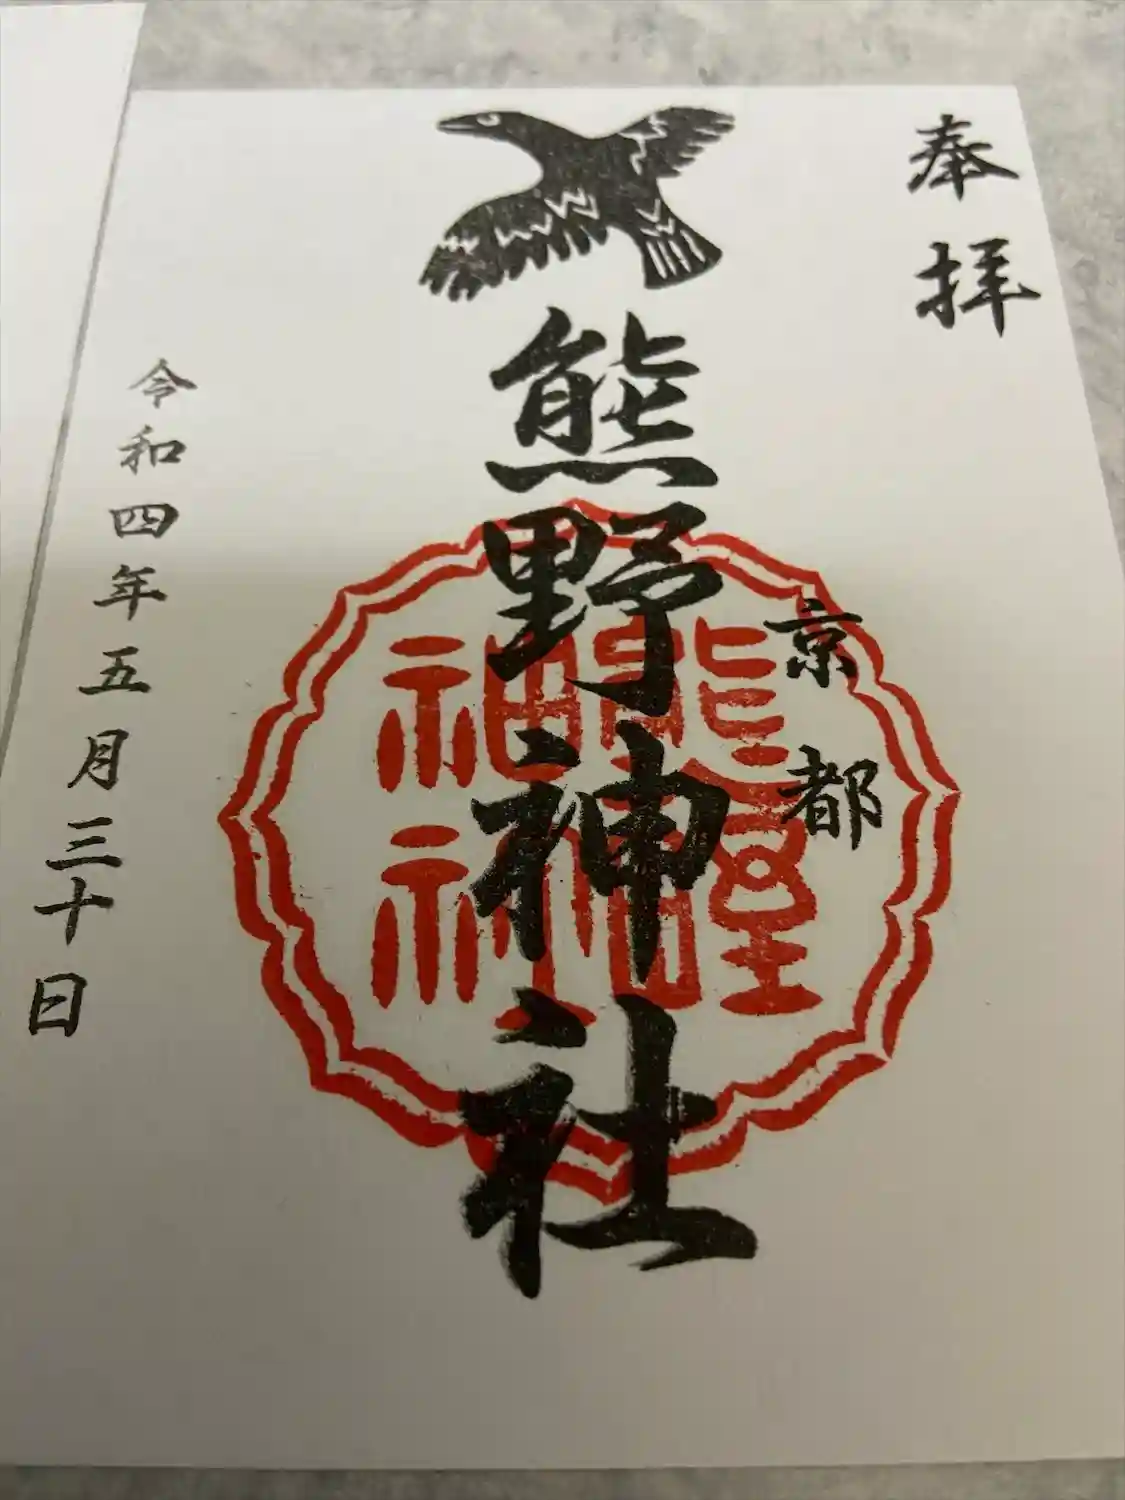 奉拝
京都
熊野神社
熊野神社
令和四年五月三十日